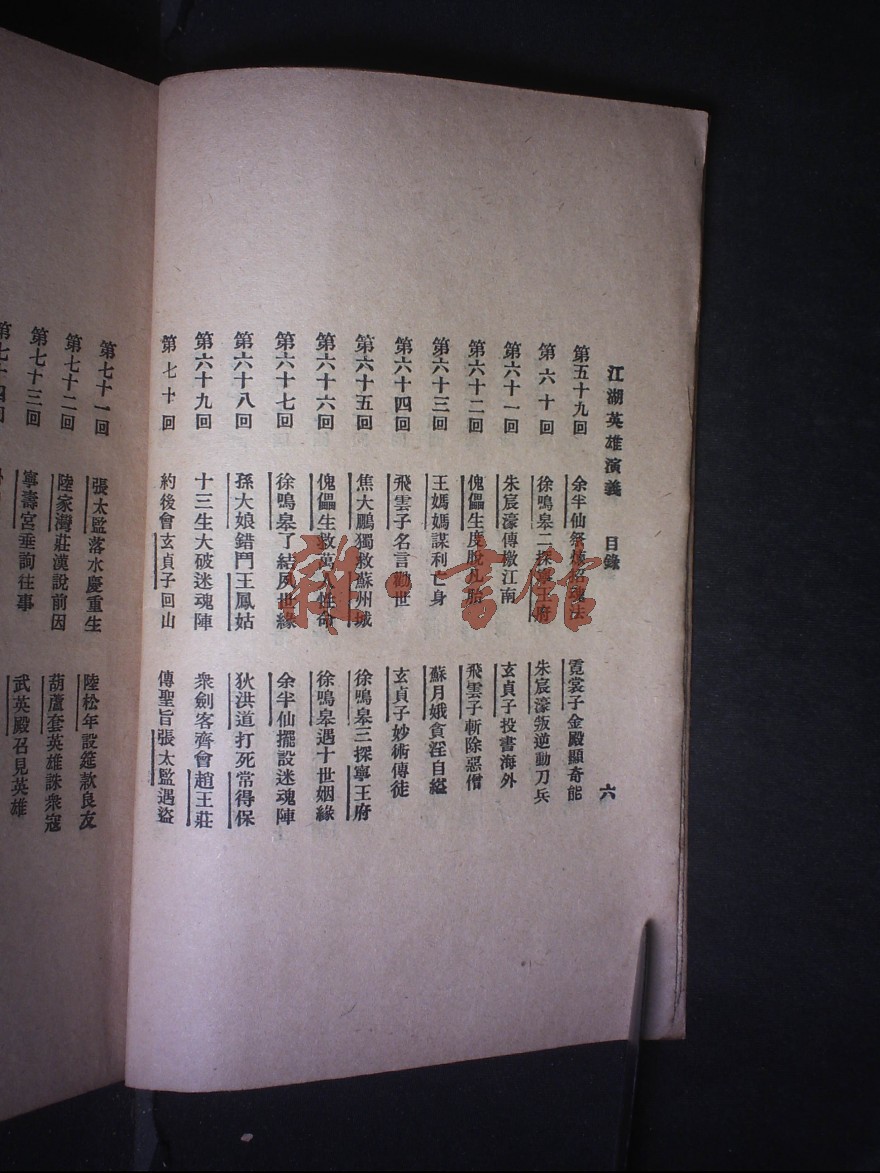 江湖英雄演義 目錄 六
第五十九回 余半仙祭煉招魂法 霓裳子金殿顯奇能
第六十回 徐鳴皋二探寧王府 朱宸濠叛逆動刀兵
第六十一回 朱宸濠傳檄江南 玄貞子投書海外
第六十二回 傀儡生度脫凡胎 飛雲子斬除惡僧
第六十三回 王媽媽謀利亡身 蘇月娥貪淫自縊
第六十四回 飛雲子名言勸世 玄貞子妙術傳徒
第六十五回 焦大鵬獨救蘇州城 徐鳴皋三探寧王府
第六十六回 傀儡生救萬人性命 徐鳴皋遇十世姻緣
第六十七回 徐鳴皋了結夙世緣 余半仙擺設迷魂陣
第六十八回 孫大娘錯鬥王鳳姑 狄洪道打死常得保
第六十九回 十三生大破迷魂陣 衆劍客齊會趙王莊
第七十回 約後會玄貞子回山 傳聖旨張太監遇盜
第七十一回 張太監落水慶重生 陸松年設筵款良友
第七十二回 陸家灣莊漢說前因 葫蘆套英雄誅衆寇
第七十三回 寧壽宮垂詢往事 武英殿召見英雄
第七十四回
雜·書館